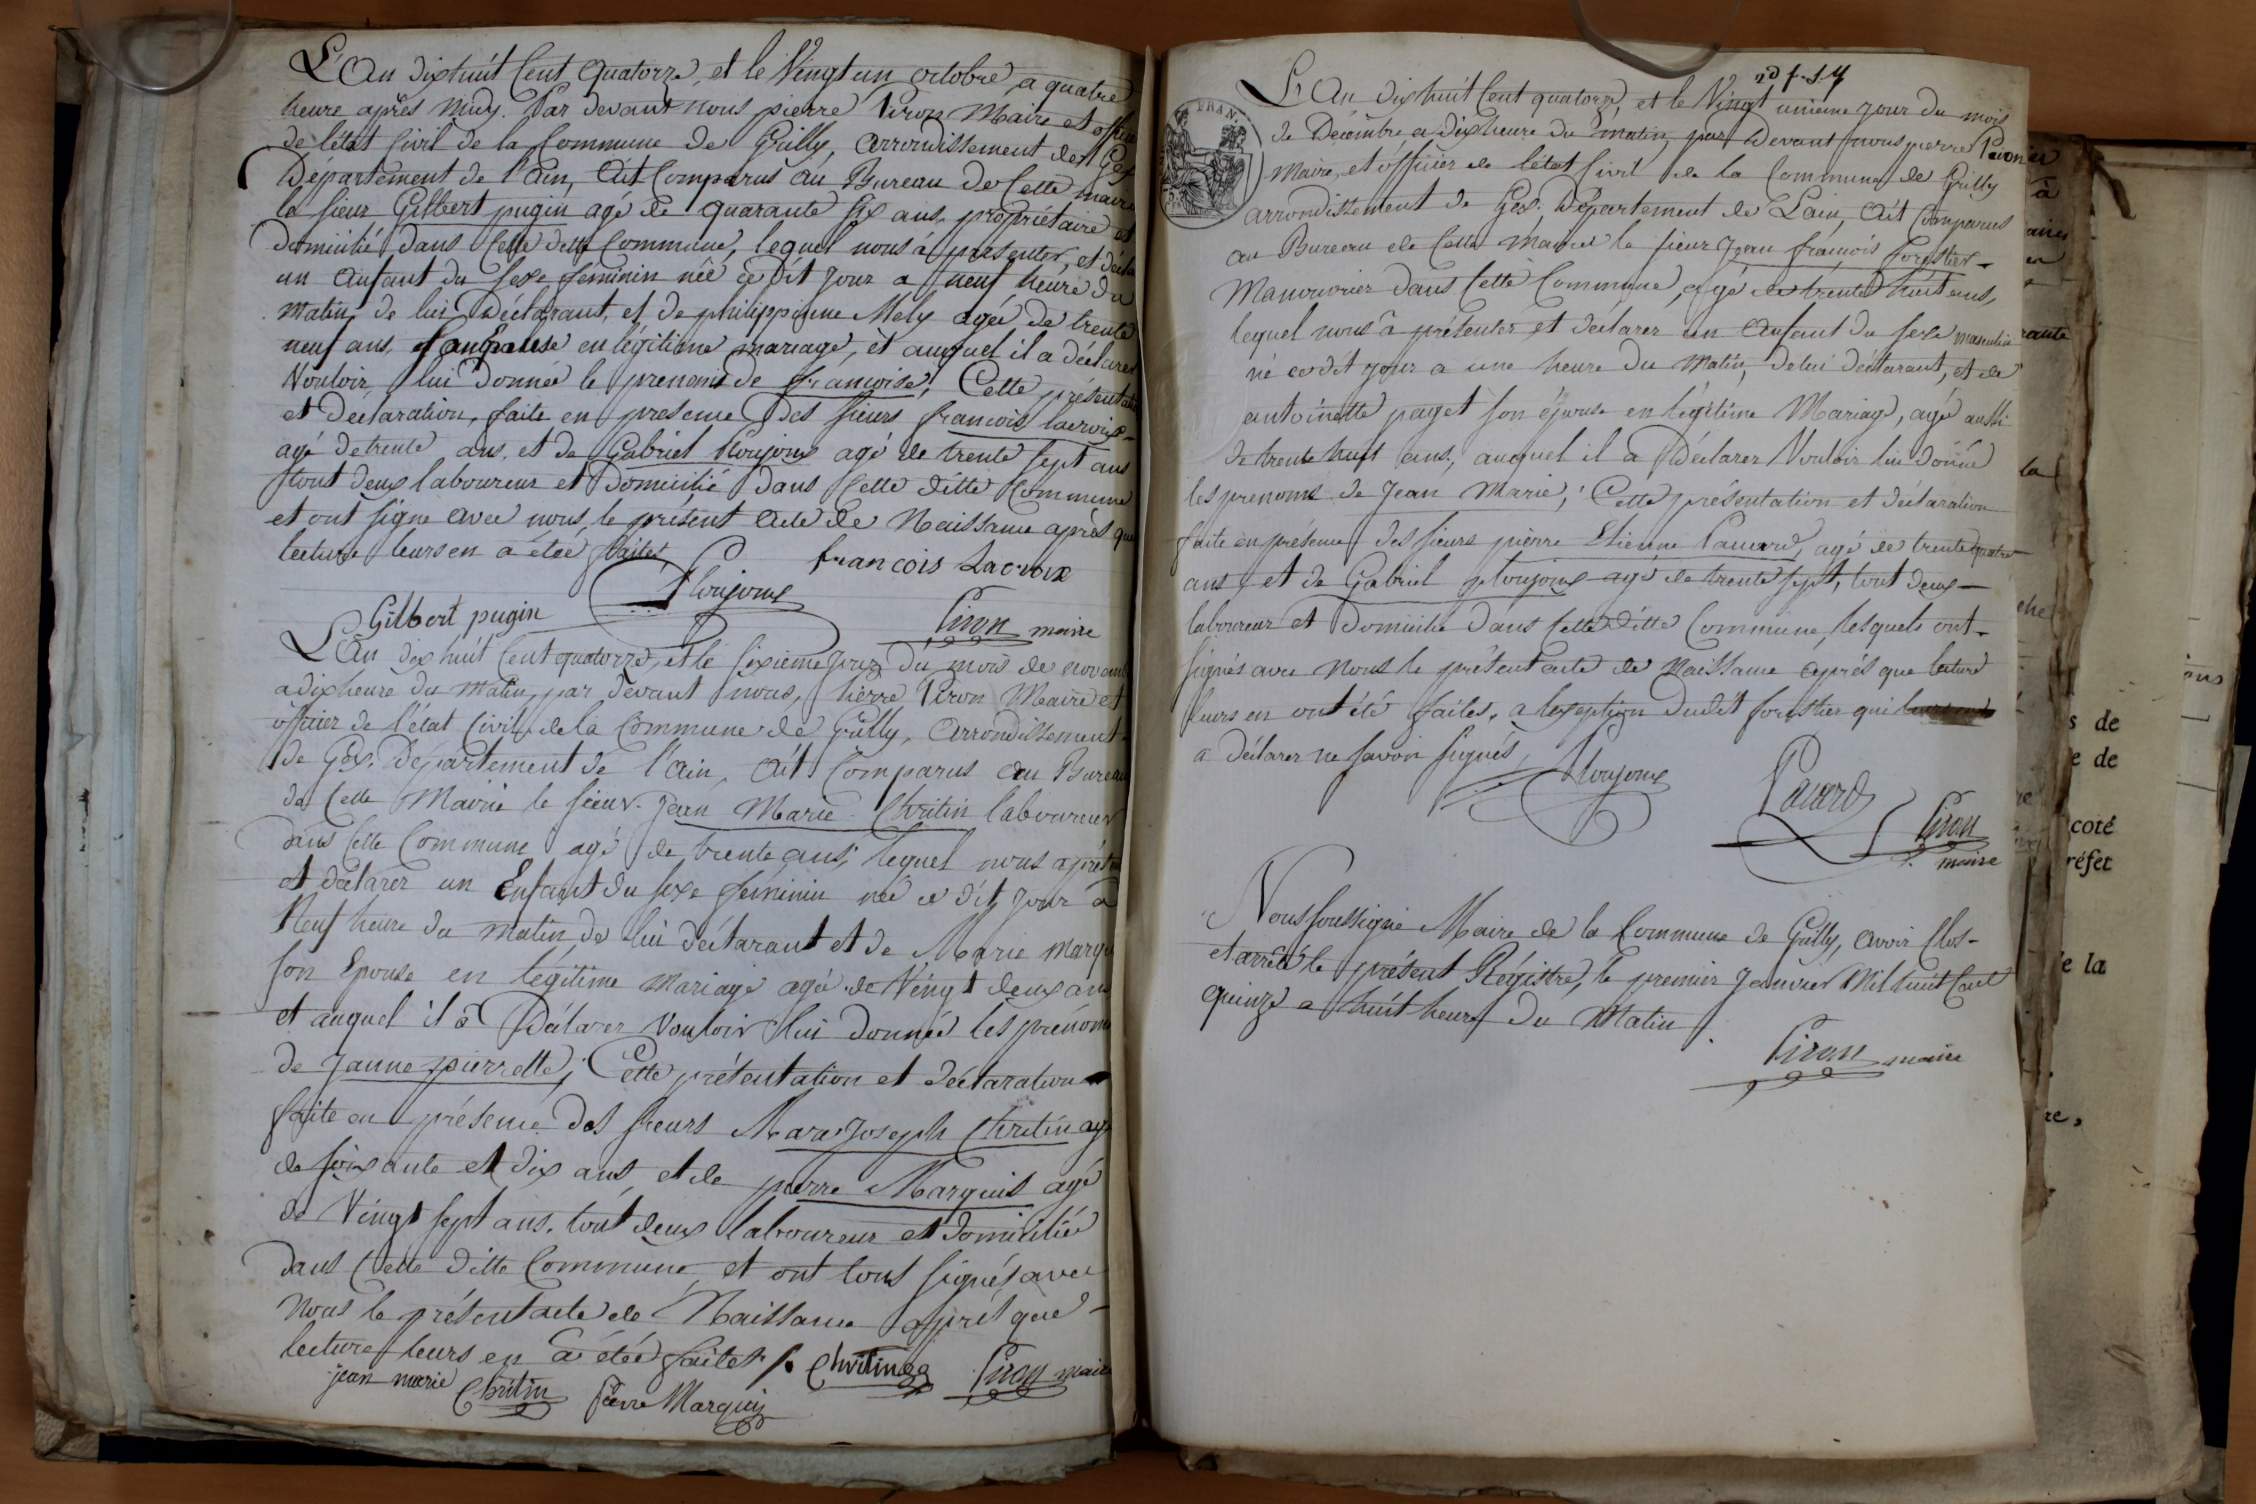 L'An dixhuit Cent quatorze, et le Vingt un octobre a quatre
heure après midy. Par devant nous pierre Piron Maire et officier
de l'état Civil de la Commune de Grilly, arrondissement de Gex
Département de l'ain, Ait Comparus au Bureau de Cette mairie
le sieur Gilbert pugin agé de quarante six ans propriétaire et
domicilié dans Cette ditte Commune, lequel nous à présenter, et décla
un Anfant du sexe feminin née ce dit Jour a neuf heure du
matin de lui Déclarant, et de philippinne Mely agée de trente
neuf ans, Son Epouse en légitime mariage, et auquel il a déclarer
Vouloir lui donnée le prenoms de francoise; Cette présentation
et déclaration, faite en presence des sieurs francois lacroix
agé de trente ans, et de Gabriel Ploujoux agé de trente sept ans
tout deux laboureur et Domicilié dans Cette ditte Commune
et ont signe avec nous le présent acte de Naissance après que
lecture leurs en a étée faites
francois Lacroix
Ploujoux
Gilbert pugin
Piron maire
L'An dix huit Cent quatorze, et le sixieme jour du mois de novemb
a dix heure du matin, par devant nous, Pierre Piron Maire et
officier de l'état Civil de la Commune de Grilly, arrondissement
de Gex. Département de l'ain, Ait Comparus au Bureau
de Cette Mairie le sieur Jean Marie Chritin laboureur
dans Cette Commune agé de trente ans, lequel nous a présen
et déclarer un Enfant du sexe féminin née ce dit Jour a
Neuf heure du matin de lui déclarant et de Marie Marqu
son Epouse en légitime mariage agée de Vingt deux ans
et auquel il a Déclarer Vouloir lui donnée les prénoms
de Janne pierrette; Cette présentation et déclaration
faite en présence des sieurs Marc Joseph Chritin agé
de soixante et dix ans, et de pierre Marquis agé
de Vingt sept ans, tout deux laboureur et domicilié
dans Cette ditte Commune, et ont tous signés avec
Nous le présent acte de Naissance après que
lecture leurs en a étée faites
Chritin
Piron maire
jean marie Chritin
Pierre Marquis
FRAN.
L'An dixhuit Cent quatorze, et le Vingt unieme jour du mois
de Décembre a dix heure du matin, par Devant nous pierre Piron
Maire, et officier de l'état Civil de la Commune de Grilly
arrondissement de Gex. Département de Lain, Ait Comparus
au Bureau de Cette mairie le sieur Jean francois Forestier
Manouvrier dans Cette Commune, agé de trente huit ans,
lequel nous à présenter et déclarer un Anfant du sexe masculin
né ce dit jour a une heure du matin, de lui déclarant, et de
antoinette paget son épouse en légitime Mariage, agé aussi
de trente huit ans, auquel il a Déclarer Vouloir lui donné
les prenoms de Jean Marie; Cette présentation et déclaration
faite en présence des sieurs pierre Etienne Panard, agé de trente quatre
ans, et de Gabriel ploujoux agé de trente sept, tout deux
laboureur et Domicilié dans Cette ditte Commune, lesquels ont
signés avec nous le présent acte de naissance après que lecture
leurs en ont été faites, a l'exeption dudit forestier qui
a déclarer ne savoir signés,
Ploujoux
Panard
Piron
maire
Nous soussigné Maire de la Commune de Grilly, avoir Clos
et arrêté le présent Régistre, le premier Janvier Mil huit Cent
quinze a huit heure du Matin.
Piron maire
s de
e de
coté
réfet
e la